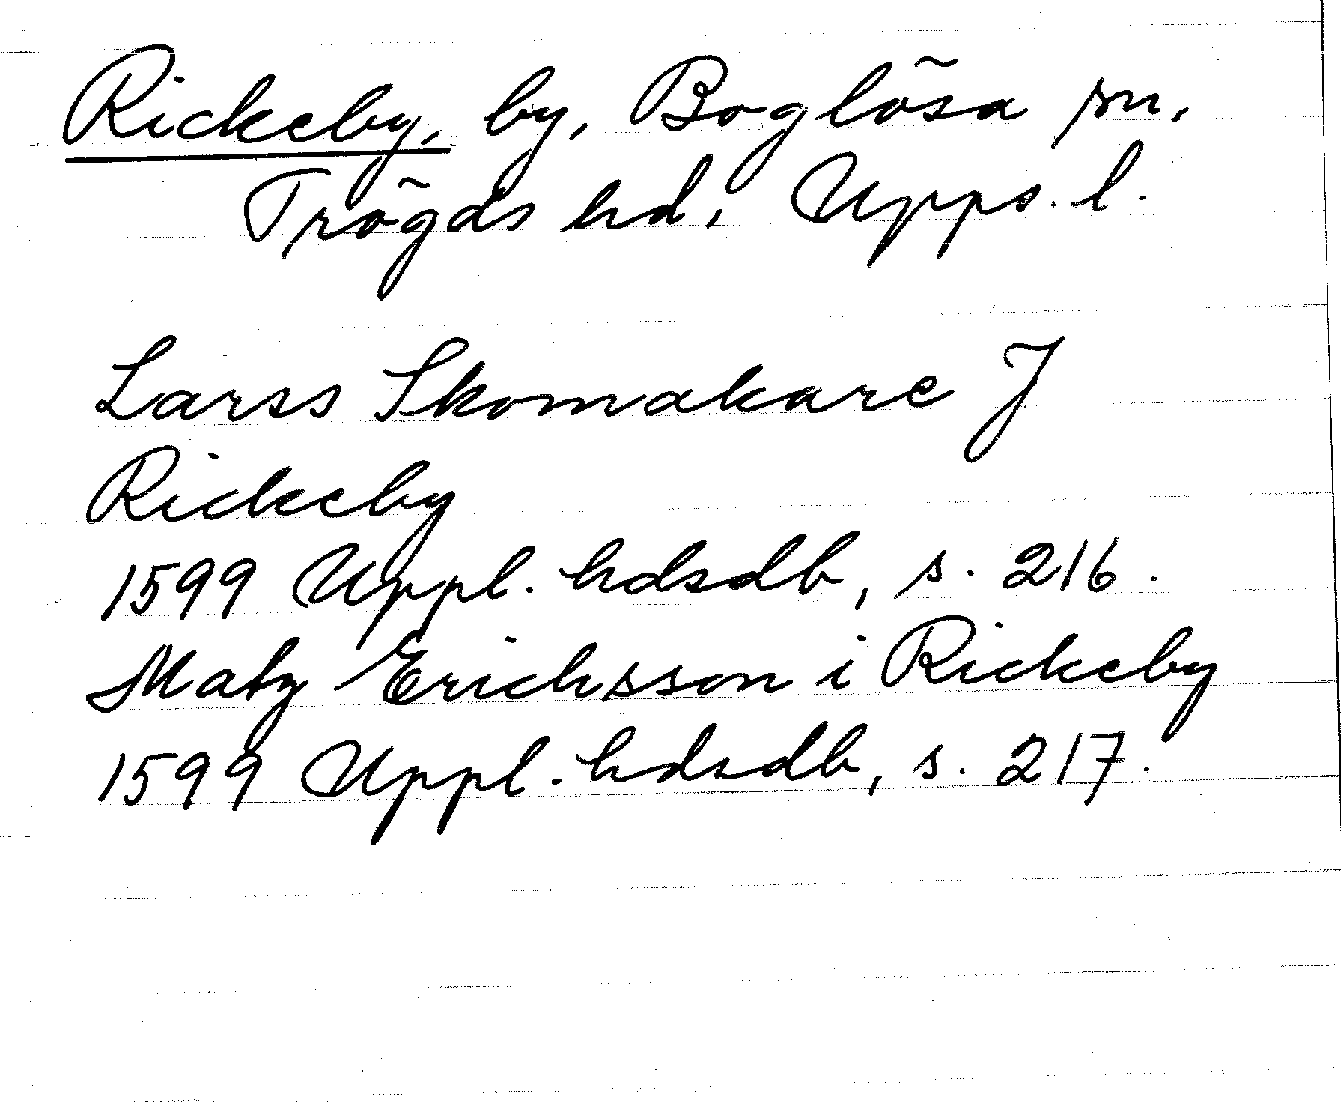 Rickeby, by, Boglösa sn,
Trögds hd, Upps. l.
Larss Skomakare J
Rickeby
1599 Uppl. hdsdb, s. 216.
Matz Erichsson i Rickeby
1599 Uppl. hdsdb, s. 217.